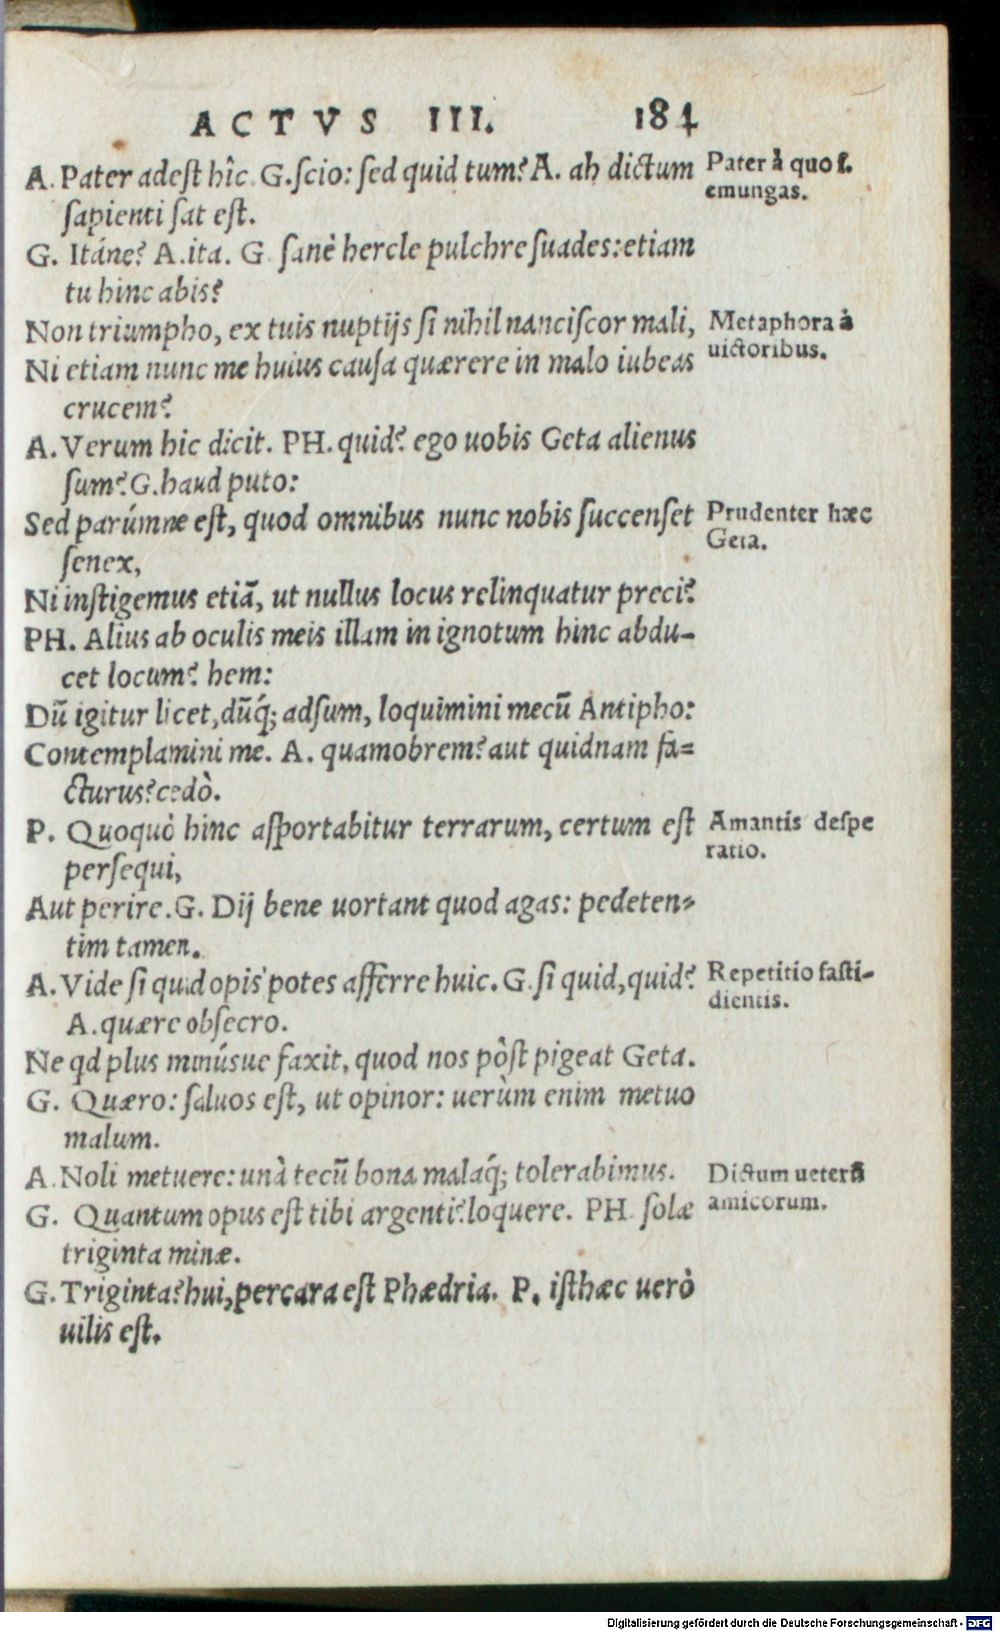 ACTVS III. 184
A. Pater adest hîc. G. scio: sed quid tum? A. ah dictum
sapienti sat est.
Pater à quo s.
emungas.
G. Itáne? A. ita. G. sanè hercle pulchre suades: etiam
tu hinc abis?
Non triumpho, ex tuis nuptijs si nihil nanciscor mali,
Ni etiam nunc me huius causa quærere in malo iubeas
crucem?
Metaphora à
uictoribus.
A. Verum hic dicit. PH. quid? ego uobis Geta alienus
sum? G. haud puto:
Sed parúmne est, quod omnibus nunc nobis succenset
senex,
Prudenter hæc
Geta.
Ni instigemus etiã, ut nullus locus relinquatur preci?
PH. Alius ab oculis meis illam in ignotum hinc abdu-
cet locum? hem:
Dũ igitur licet, dũq́; adsum, loquimini mecũ Antipho:
Contemplamini me. A. quamobrem? aut quidnam fa=
cturus? cedò.
P. Quoquò hinc asportabitur terrarum, certum est
persequi,
Amantis despe
ratio.
Aut perire. G. Dij bene uortant quod agas: pedeten=
tim tamen.
A. Vide si quid opis potes afferre huic. G. si quid, quid?
A. quære obsecro.
Repetitio fasti-
dientis.
Ne qd plus minúsue faxit, quod nos pòst pigeat Geta.
G. Quæro: saluos est, ut opinor: uerùm enim metuo
malum.
A. Noli metuere: unà tecũ bona malaq́; tolerabimus.
Dictum ueterũ
amicorum.
G. Quantum opus est tibi argenti? loquere. PH. solæ
triginta minæ.
G. Triginta? hui, percara est Phædria. P. isthæc uerò
uilis est.
Digitalisierung gefördert durch die Deutsche Forschungsgemeinschaft - DFG